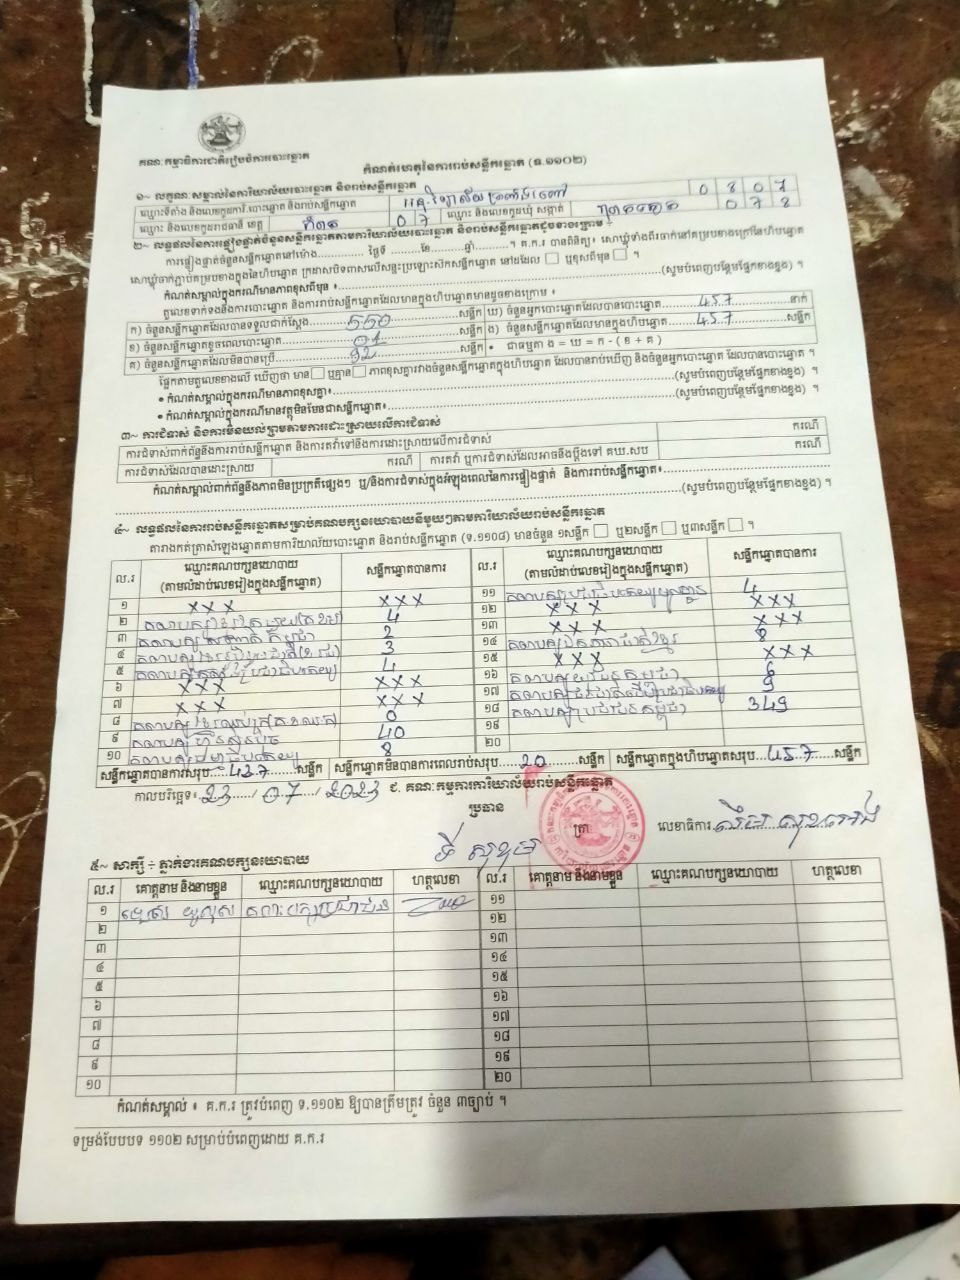 គណៈកម្មាធិការជាតិរៀបចំការបោះឆ្នោត
កំណត់ហេតុនៃការរាប់សន្លឹកឆ្នោត (ទ.១១០២)
១~ លក្ខណៈសម្គាល់នៃការិយាល័យបោះឆ្នោត និងរាប់សន្លឹកឆ្នោត
ឈ្មោះទីតាំង និងលេខកូដការិ.បោះឆ្នោត និងរាប់សន្លឹកឆ្នោត 0 8 0 7
ឈ្មោះ និងលេខកូដរាជធានី ខេត្ត កំពត 0 7 ឈ្មោះ និងលេខកូដឃុំ សង្កាត់ 0 7 8
២~ លទ្ធផលនៃការផ្ទៀងផ្ទាត់ចំនួនសន្លឹកឆ្នោតតាមការិយាល័យបោះឆ្នោត និងរាប់សន្លឹកឆ្នោតដូចខាងក្រោម ÷
ការផ្ទៀងផ្ទាត់ចំនួនសន្លឹកឆ្នោតនៅម៉ោង............... ថ្ងៃទី .........ខែ..........ឆ្នាំ...........។ គ.ក.រ បានពិនិត្យ៖ សោឃ្មុំទាំងពីរចាក់នៅគម្របខាងក្រៅនៃហិបឆ្នោត
សោឃ្មុំចាក់ភ្ជាប់គម្របខាងក្នុងនៃហិបឆ្នោត ក្រដាសបិទពាសលើសន្ទះប្រឡោះស៊កសន្លឹកឆ្នោត នៅដដែល ☐ ឬខុសពីមុន ☐ ។
កំណត់សម្គាល់ក្នុងករណីមានភាពខុសពីមុន ៖........................(សូមបំពេញបន្ថែមផ្នែកខាងខ្នង) ។
តួលេខទាក់ទងនឹងការបោះឆ្នោត និងការរាប់សន្លឹកឆ្នោតដែលមានក្នុងហិបឆ្នោតមានដូចខាងក្រោម ៖
ក) ចំនួនសន្លឹកឆ្នោតដែលបានទទួលជាក់ស្តែង.......550.......សន្លឹក ឃ) ចំនួនអ្នកបោះឆ្នោតដែលបានបោះឆ្នោត.......457.......នាក់
ខ) ចំនួនសន្លឹកឆ្នោតខូចពេលបោះឆ្នោត.......01.......សន្លឹក ង) ចំនួនសន្លឹកឆ្នោតដែលមានក្នុងហិបឆ្នោត.......457.......សន្លឹក
គ) ចំនួនសន្លឹកឆ្នោតដែលមិនបានប្រើ.......92.......សន្លឹក • ជាធម្មតា ង = ឃ = ក - ( ខ + គ )
ផ្អែកតាមតួលេខខាងលើ ឃើញថា មាន☐ ឬគ្មាន☐ ភាពខុសគ្នារវាងចំនួនសន្លឹកឆ្នោតក្នុងហិបឆ្នោត ដែលបានរាប់ឃើញ និងចំនួនអ្នកបោះឆ្នោត ដែលបានបោះឆ្នោត ។
• កំណត់សម្គាល់ក្នុងករណីមានភាពខុសគ្នា៖........................(សូមបំពេញបន្ថែមផ្នែកខាងខ្នង) ។
• កំណត់សម្គាល់ក្នុងករណីមានវត្ថុមិនមែនជាសន្លឹកឆ្នោត៖........................(សូមបំពេញបន្ថែមផ្នែកខាងខ្នង) ។
៣~ ការជំទាស់ និងការមិនយល់ព្រមតាមការដោះស្រាយលើការជំទាស់
ការជំទាស់ពាក់ព័ន្ធនឹងការរាប់សន្លឹកឆ្នោត និងការតវ៉ាទៅនឹងការដោះស្រាយលើការជំទាស់ ករណី
ការជំទាស់ដែលបានដោះស្រាយ ករណី ការតវ៉ា ឬការជំទាស់ដែលអាចនឹងប្ដឹងទៅ គឃ.សប ករណី
កំណត់សម្គាល់ពាក់ព័ន្ធនឹងភាពមិនប្រក្រតីផ្សេងៗ ឬ/និងការជំទាស់ក្នុងអំឡុងពេលនៃការផ្ទៀងផ្ទាត់ និងការរាប់សន្លឹកឆ្នោត៖........................
........................(សូមបំពេញបន្ថែមផ្នែកខាងខ្នង) ។
៤~ លទ្ធផលនៃការរាប់សន្លឹកឆ្នោតសម្រាប់គណបក្សនយោបាយនីមួយៗតាមការិយាល័យរាប់សន្លឹកឆ្នោត
តារាងកត់ត្រាសំឡេងឆ្នោតតាមការិយាល័យបោះឆ្នោត និងរាប់សន្លឹកឆ្នោត (ទ.១១០៨) មានចំនួន ១សន្លឹក ☐ ឬ២សន្លឹក ☐ ឬ៣សន្លឹក ☐ ។
ល.រ ឈ្មោះគណបក្សនយោបាយ (តាមលំដាប់លេខរៀងក្នុងសន្លឹកឆ្នោត) សន្លឹកឆ្នោតបានការ ល.រ ឈ្មោះគណបក្សនយោបាយ (តាមលំដាប់លេខរៀងក្នុងសន្លឹកឆ្នោត) សន្លឹកឆ្នោតបានការ
១ XXX XXX ១១ 4
២ 4 ១២ XXX XXX
៣ គណបក្សសញ្ជាតិកម្ពុជា 2 ១៣ XXX XXX
៤ 3 ១៤ 8
៥ 4 ១៥ XXX XXX
៦ XXX XXX ១៦ គណបក្សយុវជនកម្ពុជា 6
៧ XXX XXX ១៧ 9
៨ 0 ១៨ គណបក្សប្រជាជនកម្ពុជា 349
៩ គណបក្សហ៊្វុនស៊ិនប៉ិច 40 ១៩
១០ 8 ២០
សន្លឹកឆ្នោតបានការសរុប.....437.....សន្លឹក សន្លឹកឆ្នោតមិនបានការពេលរាប់សរុប.....20.....សន្លឹក សន្លឹកឆ្នោតក្នុងហិបឆ្នោតសរុប....457...សន្លឹក
កាលបរិច្ឆេទ៖ 23 / 07 / 2023 ជ. គណៈកម្មការការិយាល័យរាប់សន្លឹកឆ្នោត
ប្រធាន ត្រា លេខាធិការ
ទី សុខុម
៥~ សាក្សី ÷ ភ្នាក់ងារគណបក្សនយោបាយ
ល.រ គោត្តនាម និងនាមខ្លួន ឈ្មោះគណបក្សនយោបាយ ហត្ថលេខា ល.រ គោត្តនាម និងនាមខ្លួន ឈ្មោះគណបក្សនយោបាយ ហត្ថលេខា
១ គណបក្សប្រជាជន ១១
២ ១២
៣ ១៣
៤ ១៤
៥ ១៥
៦ ១៦
៧ ១៧
៨ ១៨
៩ ១៩
១០ ២០
កំណត់សម្គាល់ ៖ គ.ក.រ ត្រូវបំពេញ ទ.១១០២ ឱ្យបានត្រឹមត្រូវ ចំនួន ៣ច្បាប់ ។
ទម្រង់បែបបទ ១១០២ សម្រាប់បំពេញដោយ គ.ក.រ